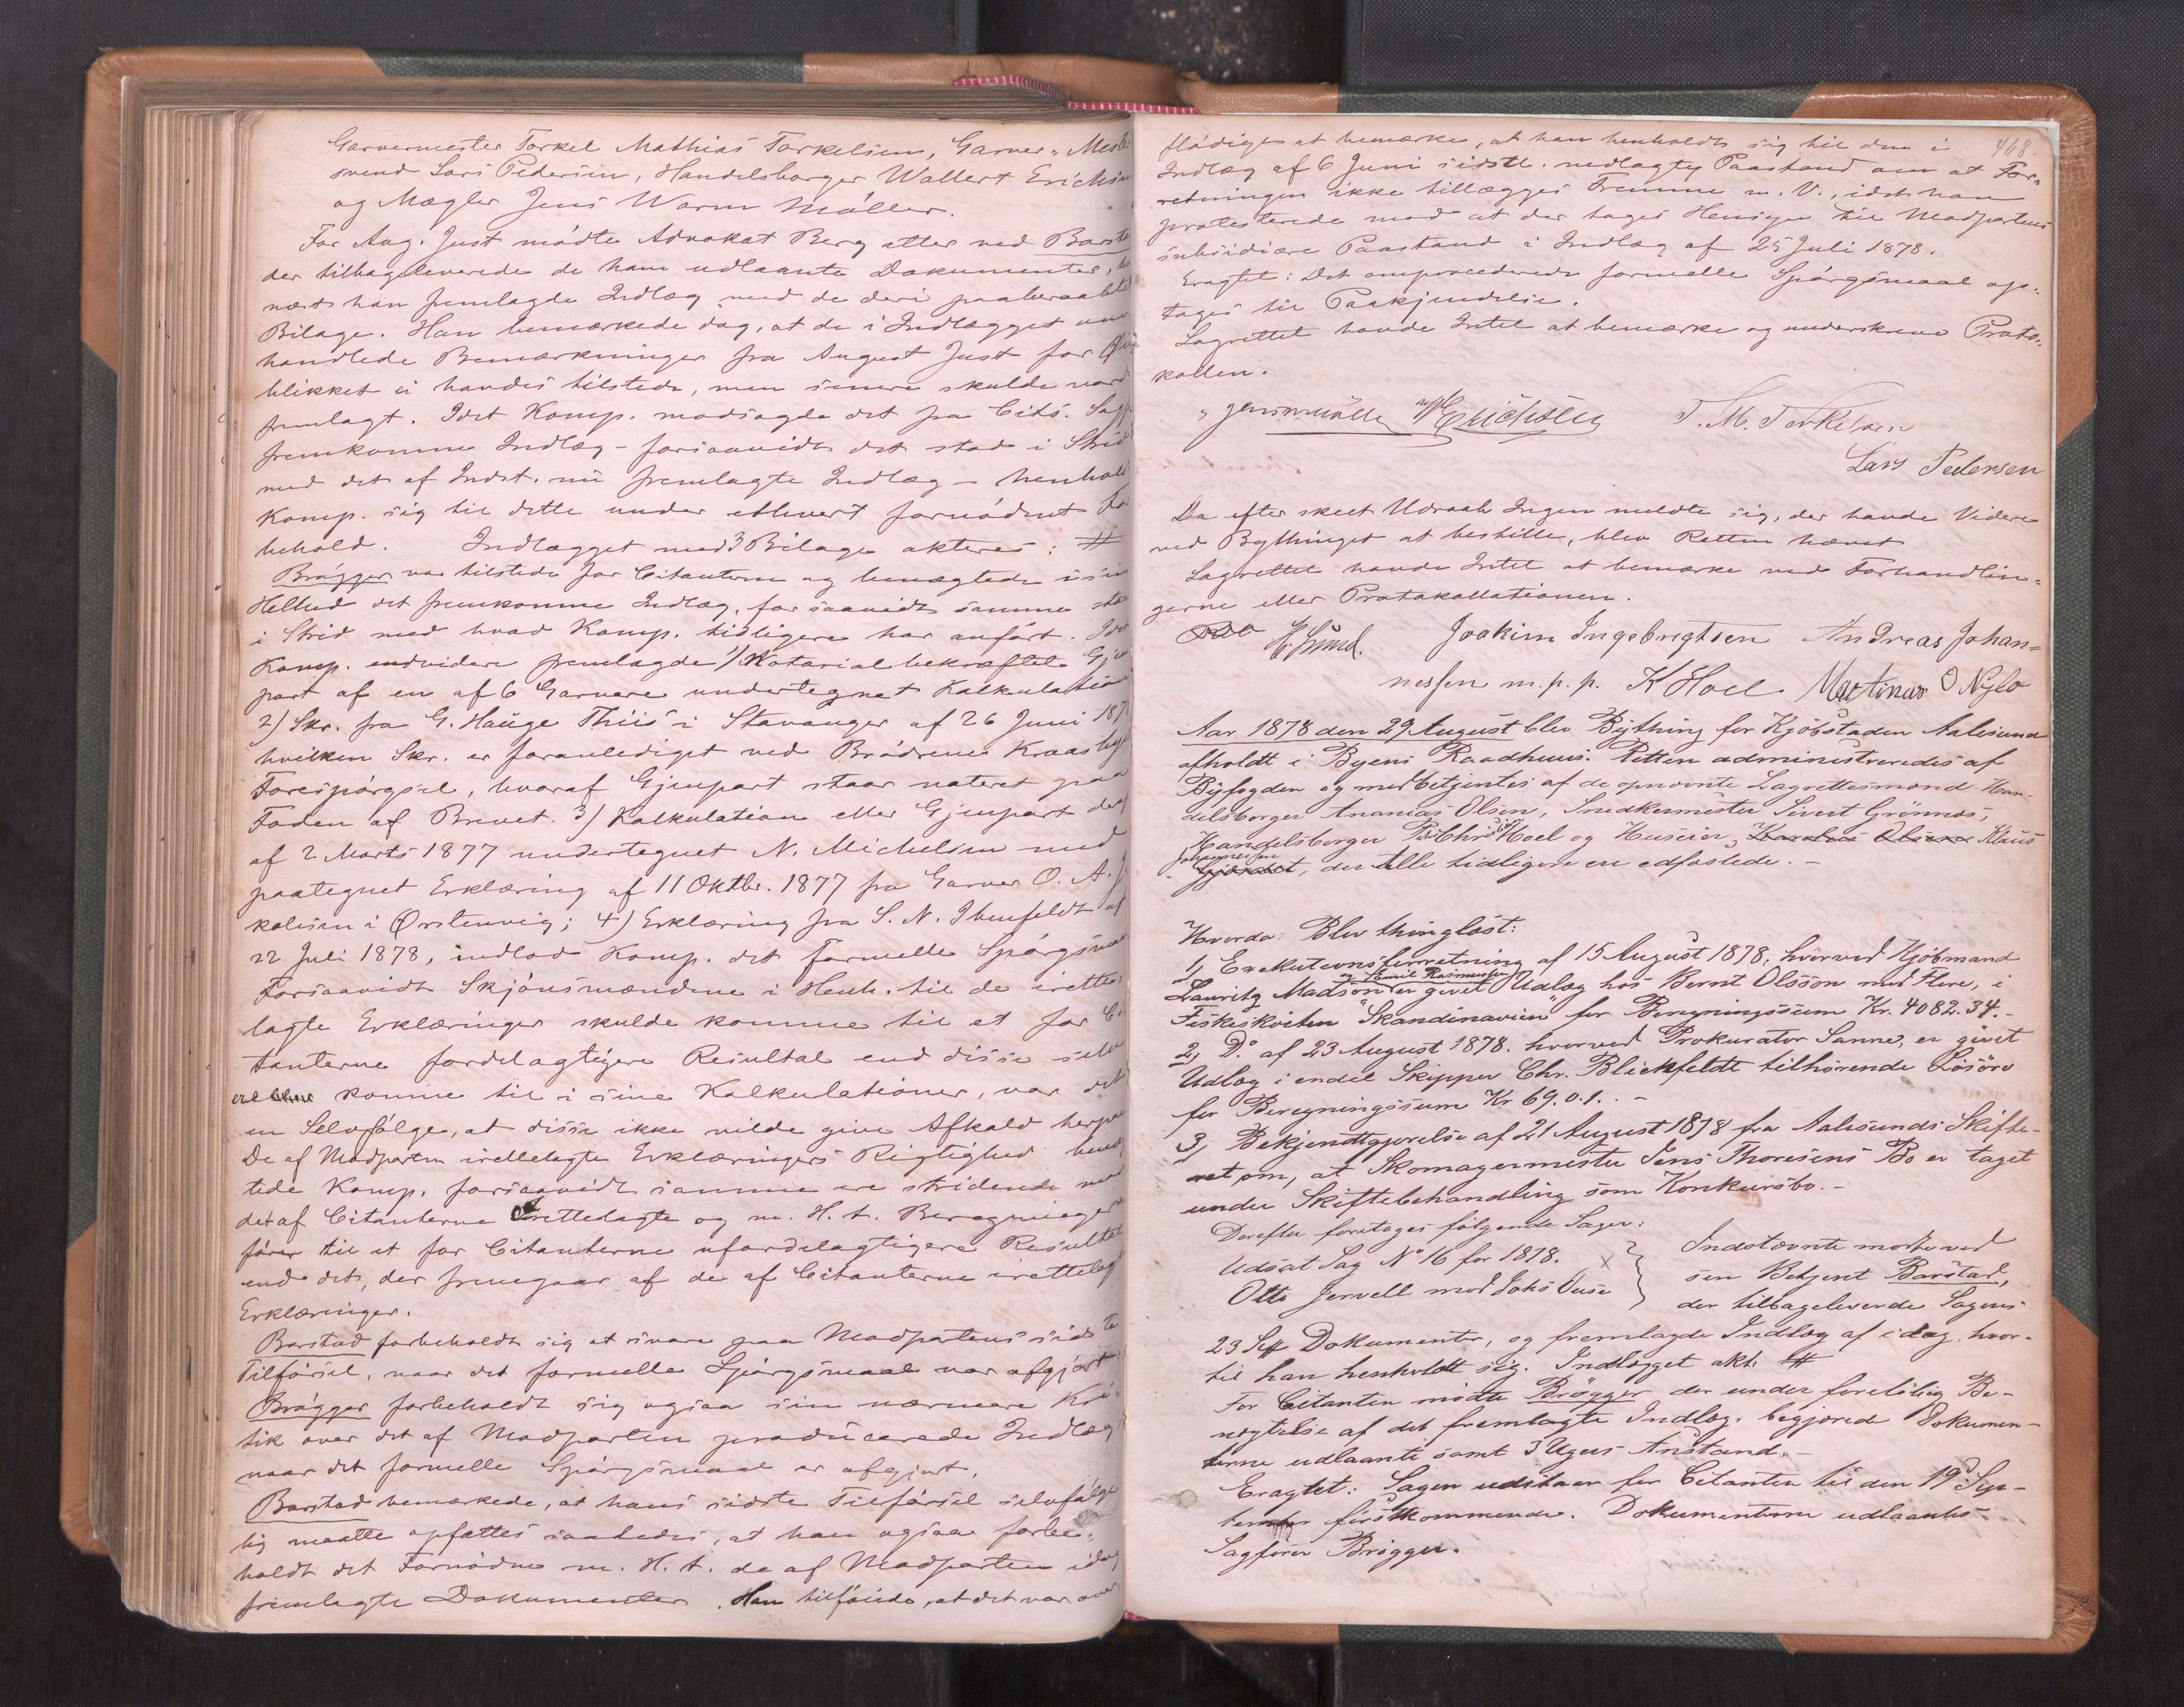 Garvermester Torkel Mathias Torkelsen, Garver-Mester
svend Lars Pedersen, Handelsborger Wallert Erichsen
og Mægler Jens Warm Møller.
For Aug. Just mødte Advokat Berg atter ved Barstad
der tilbageleverede de ham udlaante Dokumenter,
næst han fremlagde Indlæg med de deri paaberaabte
Bilage. Han bemærkede dog, at de i Indlægget om
handlede Bemærkninger fra August Just for Øie
blikket ei havdes tilstede, men senere skulde vorde
fremlagt. Idet Komp. modsagde det fra Cits. Side
fremkomne Indlæg - forsaavidt det stod i Strid
med det af Indst. nu fremlagte Indlæg - henholdt
Komp. sig til dette under ethvert fornødent For
behold. Indlægget med 3 Bilage akteres: #
Brøgger var tilstede for Citanterne og benægtede i sin
Helhed det fremkomne Indlæg, forsaavidt samme staar
i Strid med hvad Komp. tidligere har anført. Idet
Komp. endvidere fremlagde 1/ Notarialbekræftet Gjen
part af en af 6 Garvere undertegnet Kalkulation
2) Skr. fra G. Hauge Thiis i Stavanger af 26 Juni 187
hvilken Skr. er foranlediget ved Brødrene Kraasbys
Forespørgsel, hvoraf Gjenpart staar noteret paa
Foden af Brevet. 3) Kalkulation eller Gjenpart deraf
af 2 Marts 1877 undertegnet N. Michelsen med
paategnet Erklæring af 11 Oktbr. 1877 fra Garver O. A. J
kolsen i Ørstenvig; 4) Erklæring fra S. N. Ibenfeldt af
22 Juli 1878, indlod Komp. det formelle Spørgsmaal
Forsaavidt Skjønsmændene i Henh. til de irette-
lagte Erklæringer skulde komme til et for Ci
tanterne fordelagtigere Resultat end disse selv
ere komne til i sine Kalkulationer, var det
en Selvfølge, at disse ikke vilde give Afkald herpaa
De af Modparten irettelagte Erklæringers Rigtighed benæg
tede Komp. forsaavidt samme ere stridende mod
det af Citanterne irettelagte og m. H. t. Beregningerne
fører til et for Citanterne ufordelagtigere Resultat
end det, der fremgaar af de af Citanterne irettelagte
Erklæringer.
Barstad forbeholdt sig at svare paa Modpartens sidste
Tilførsel, naar det formelle Spørgsmaal var afgjort
Brøgger forbeholdt sig ogsaa sin nærmere Kri-
tik over det af Modparten producerede Indlæg
naar det formelle Spørgsmaal er afgjort.
Barstad bemærkede, at hans sidste Tilførsel selvfølge
lig maatte opfattes saaledes, at han ogsaa forbe-
holdt det Fornødne m. H. t. de af Modparten idag
fremlagte Dokumenter. Han tilføiede, at det var over-
468.
flødigt at bemærke, at han henholdt sig til den i
Indlæg af 6 Juni sidstl. nedlagte Paastand om at For-
retningen ikke tillægges Fremme m. V., idet han
protesterede mod at der tages Hensyn til Modpartens
subsidiære Paastand i Indlæg af 25 Juli 1878.
Eragtet: Det omprocederede formelle Spørgsmaal op-
tages til Paakjendelse.
Lagrettet havde Intet at bemærke og underskrev Proto-
kollen.
Jens W Møller W Erichsen T. M. Torkelsen
Lars Pedersen
Da efter skeet Udraab Ingen meldte sig, der havde Videre
ved Bythinget at bestille, blev Retten hævet
Lagrettet havde Intet at bemærke ved Forhandlin-
gerne eller Protokollationen.
Joakim Ingebrigtsen Andreas Johan-
nessen m. p. p. K Hoel Martinus O Nylo
Aar 1878 den 29 August blev Bything for Kjøbstaden Aalesund
afholdt i Byens Raadhuus. Retten administreredes af
Byfogden og medbetjentes af de opnævnte Lagrettesmænd Han-
delsborger Ananias Olsen, Snedkermester Sivert Grønnæs,
Handelsborger Chr. Hoel og Huseier, Klaus
Johannessen
, der Alle tidligere ere edfæstede. -
Hvorda: Blev thinglæst:
1) Exekutionsforretning af 15 August 1878, hvorved Kjøbmand
og Emil Rasmussen
Lauritz Madsøn er givet Udlæg hos Bernt Olsson med Flere, i
Fiskeskøiten "Skandinavien" for Beregningssum Kr. 4082.34.-
2) Do. af 23 August 1878. hvorved Prokurator Sanne, er givet
Udlæg i endel Skipper Chr. Blickfeldt tilhørende Løsøre
for Beregningssum Kr 69.01. -
3) Bekjendtgjørelse af 21 August 1878 fra Aalesunds Skifte-
ret om, at Skomagermester Jens Thoresens Bo er taget
under Skiftebehandling som Konkursbo. -
Derefter foretoges følgende Sager:
Udsat Sag No 16 for 1878. X
Otto Jervell mod Johs Ouse
Indstævnte mødte ved
sin Betjent Barstad,
der tilbageleverede Sagens
23 Sept Dokumenter, og fremlagde Indlæg af idag, hvor-
til han henholdt sig. Indlægget akt. #
For Citanten mødte Brøgger der under foreløbig Be-
nægtelse af det fremlagte Indlæg, begjæred Dokumen-
terne udlaante samt 3 Ugers Anstand. -
Eragtet: Sagen udstaar for Citanten til den 19d Sep-
tember førstkommende. Dokumenterne udlaantes
Sagfører Brøgger.